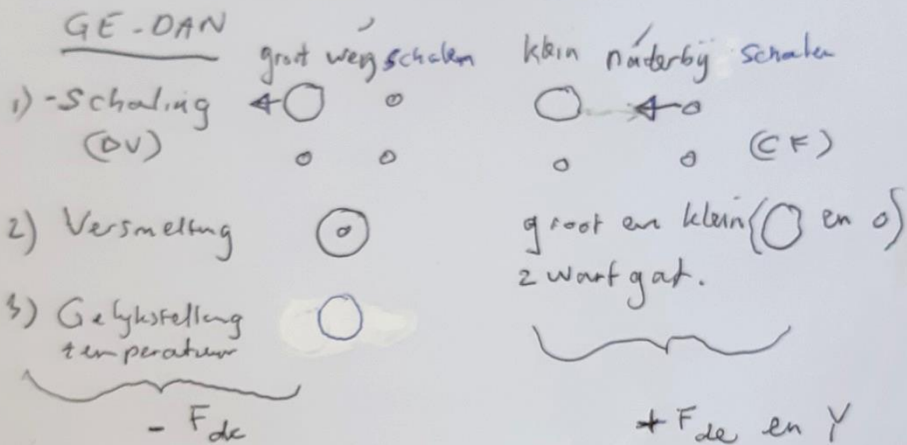 GE-DAN
groot wég schalen klein náderbij schalen
1) -Schaling
(DV) (CF)
2) Versmelting groot en klein (O en o)
zwart gat.
3) Gelijkstelling
temperatuur
- F de + F de en Y